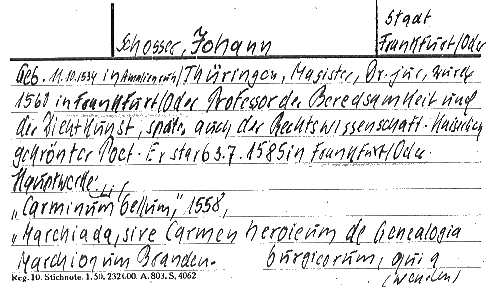 Stadt
Schosser, Johann Frankfurt/Oder
Geb. 11.10.1534 in /Thüringen, Magister, Dr. jur, wurde
1560 in Frankfurt/Oder Professor der Beredsamkeit und
der Dichtkunst, später auch der Rechtswissenschaft. Kaiserlich
gekrönter Poet. Er starb 3.7.1585 in Frankfurt/Oder.
Hauptwerke:
"Carminum bellum," 1558,
"Marchiada, sive Carmen heroicum de Genealogia
Marchionum Branden- burgicorum, 
(wenden)
Reg. 10. Stichnote. 1. 50. 232000. A. 803. S. 4062